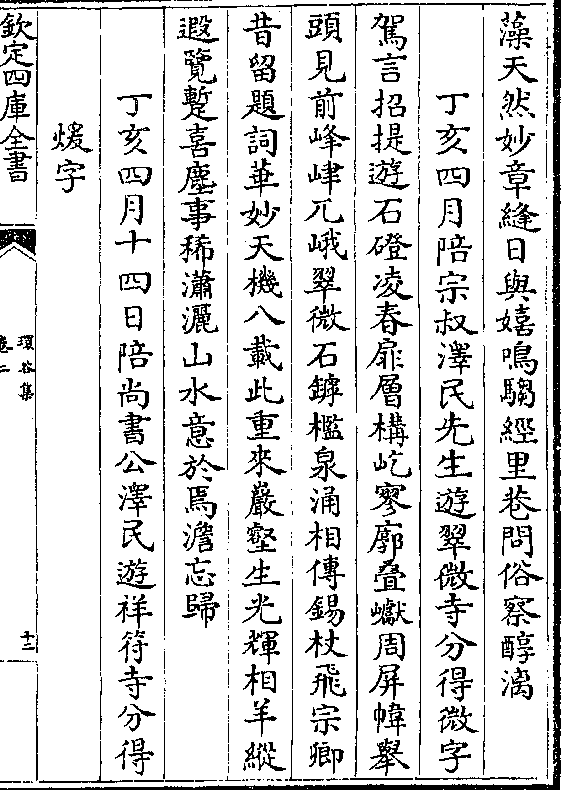 藻天然妙章縫日與嬉鳴騶經里巷問俗察醇漓
丁亥四月陪宗叔澤民先生遊翠微寺分得微字
駕言招提遊石磴凌春扉層構屹寥廓叠巘周屏幃舉
頭見前峰峍兀峨翠微石罅檻泉涌相傳錫杖飛宗卿
昔留題詞華妙天機八載此重來巖壑生光輝相羊縱
遐覽蹔喜塵事稀瀟灑山水意於焉澹忘歸
丁亥四月十四日陪尚書公澤民遊祥符寺分得
煖字
欽定四庫全書
環谷集
卷二
十三